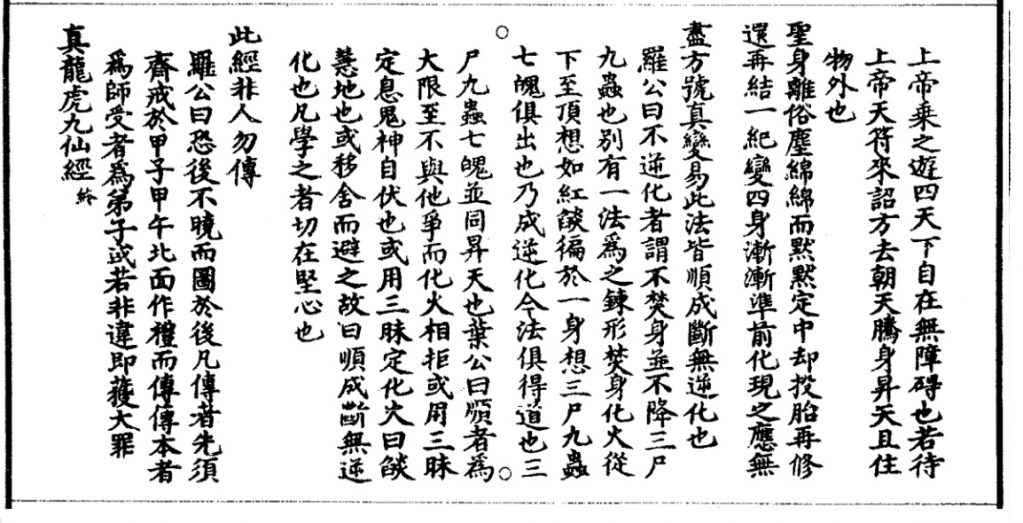 上帝乗之遊四天下自在無障碍也若待
上帝天符來詔方去朝天騰身昇天且住
物外也
聖身離俗塵綿綿而默默定中却投胎再修
還再結一紀變四身漸漸準前化現之應無
盡方號真變易此法皆順成斷無逆化也
羅公曰不逆化者謂不焚身並不降三尸
九蟲也别有一法為之鍊形焚身化火從
下至頂想如紅燄徧於一身想三尸九蟲
七魄俱出也乃成逆化今法俱得道也三
尸九蟲七魄並同昇天也葉公曰順者為
大限至不與他爭而化火相拒或用三昧
定息鬼神自伏也或用三昧定化火曰燄
慧地也或移舍而避之故曰順成斷無逆
化也凡學之者切在堅心也
此經非人勿傳
羅公曰恐後不曉而圖於後凡傳者先須
齋戒於甲子甲午北面作禮而傳傳本者
為師受者為弟子或若非違即獲大罪
真龍虎九仙經 終